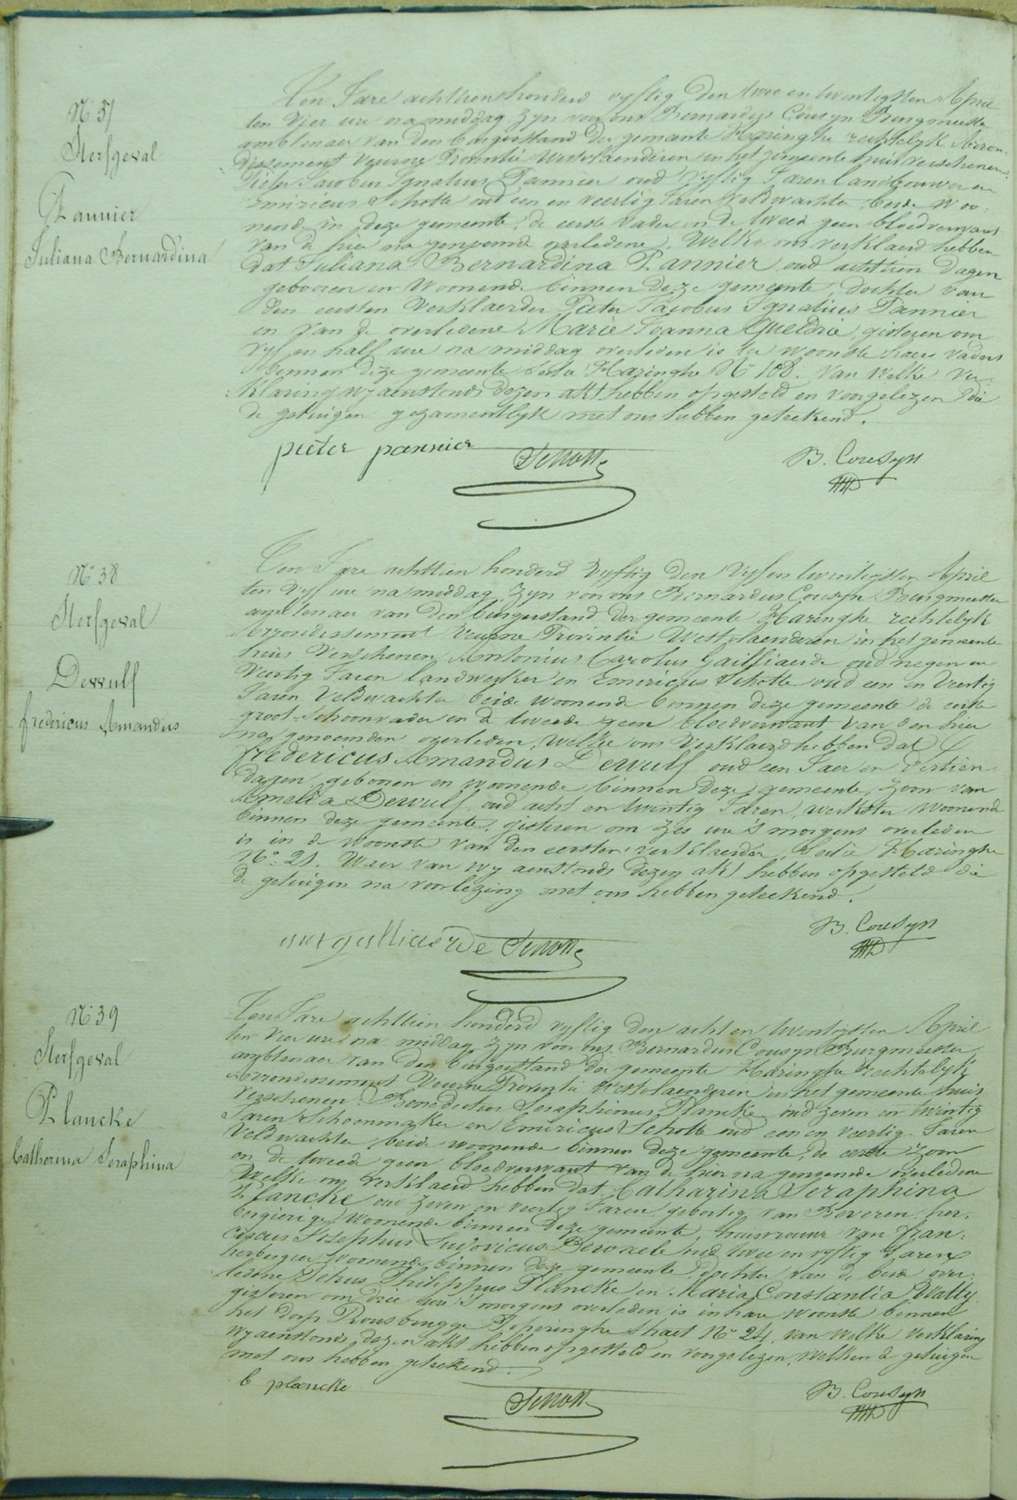 N° 37
Sterfgeval
Pannier
Juliana Bernardina
Ten Jare achttienhonderd vyftig den twee en twintigsten April
ten vier ure na middag zyn voor ons Bernardus Cousyn Burgmeester
ambtenaer van den burgerstand der gemeente Haringhe rechtelyk Arron-
dissement Veurne Provintie Westvlaenderen in het gemeente huis verschenen
Pieter Jacobus Ignatius Pannier oud vyftig Jaren landbouwer en
Emiricus Schotte oud een en veertig Jaren veldwachter beide woo-
nende in deze gemeente, de eerste vader en de tweede geen bloedverwant
van de hier na genoemde overledene; Welke ons verklaerd hebben
dat Juliana Bernardina Pannier oud achttien dagen
geboren en woonende binnen deze gemeente, dochter van
den eersten verklaerder Pieter Jacobus Ignatius Pannier
en van de overledene Marie Joanna Queldrie, gisteren om
vyf en half ure na middag overleden is ter woonste haers vaders
binnen deze gemeente Sectie Haringhe N° 108. Van welke ver-
klaring wy aenstonds dezen akt hebben opgesteld en voorgelezen die
de getuigen gezamentlyk met ons hebben geteekend.
pieter pannier Schotte B. Cousyn
N° 38
Sterfgeval
Dewulf
fredericus Amandus
Ten Jare achttien honderd vyftig den vyf en twintigsten April
ten vyf ure na middag, zyn voor ons Bernardus Cousyn Burgmeester
ambtenaer van den burgerstand der gemeente Haringhe rechtelyk
Arrondissement Veurne Provintie Westvlaenderen in het gemeente
huis verschenen, Antonius Carolus Gailliaerde oud negen en
veertig Jaren landwerker en Emiricus Schotte oud een en veertig
Jaren veldwachter beide woonende binnen deze gemeente de eerste
groot-schoonvader en de tweede geen bloedverwant van den hier
na genoemden overleden, welke ons verklaerd hebben dat
Fredericus Amandus Dewulf oud een Jaer en dertien
dagen, geboren en woonende binnen deze gemeente, zoon van
Amelia Dewulf oud acht en twintig Jaren, werkster woonende
binnen deze gemeente, gisteren om zes ure 's morgens overleden
is in de woonste van den eersten verklaerder, Sectie Haringhe
N° 21. Waer van wy aenstonds dezen akt hebben opgesteld die
de getuigen na voorlezing met ons hebben geteekend.
Schotte B. Cousyn
N° 39
Sterfgeval
Plancke
Catharina Seraphina
Ten Jare achttien honderd vyftig den acht en twintigsten April
ten vier ure na middag zyn voor ons Bernardus Cousyn Burgmeester
ambtenaer van den burgerstand der gemeente Haringhe rechtelyk
Arrondissement Veurne Provintie Westvlaenderen in het gemeente huis
verschenen Benedictus Seraphinus Plancke oud zeven en twintig
Jaren schoenmaker en Emiricus Schotte oud een en veertig Jaren
veldwachter beide woonende binnen deze gemeente, de eerste zoon
en de tweede geen bloedverwant van de hier na genoemde overledene
Welke ons verklaerd hebben dat Catharina Seraphina
Plancke oud zeven en veertig Jaren, geboortig van Beveren, her-
bergierige, woonende binnen deze gemeente, huisvrouw van Fran-
ciscus Josephus Ludovicus oud twee en vyftig Jaren
herbergier woonende binnen deze gemeente, dochter van de beide over-
ledene Philippus Plancke en Maria Constantia Wally,
gisteren om drie ure 's morgens overleden is in hare woonste binnen
het dorp Rousbrugge Poperinghe straet N° 24, van welke verklaring
wy aenstonds dezen akt hebben opgesteld en voorgelezen, welken de getuigen
met ons hebben geteekend.
b plancke Schotte B. Cousyn